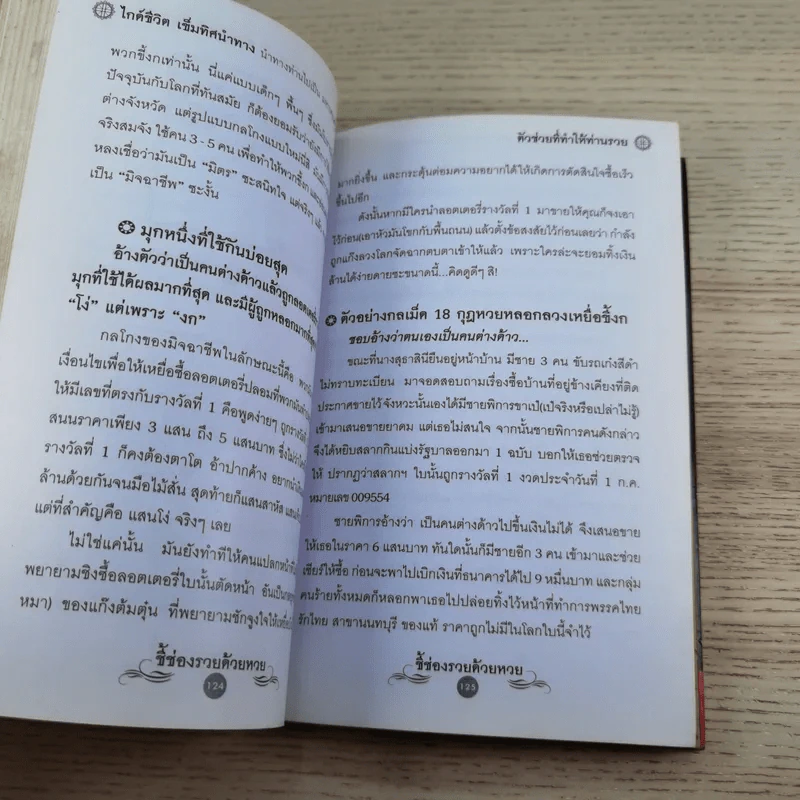 ไกด์ชีวิต เข็มทิศนำทาง นำทางท่านไปเป็น
พวกขี้งกเท่านั้น นี่แค่แบบเด็กๆ พื้นๆ ซึ่ง
ปัจจุบันกับโลกที่ทันสมัย ก็ต้องยอมรับว่า
ต่างจังหวัด แต่รูปแบบกลโกงแบบใหม่นี่สิ
จริงสมจัง ใช้คน 3 - 5 คน เพื่อทำให้พวกขี้งก
หลงเชื่อว่ามันเป็น “มิตร” ซะสนิทใจ แต่จริงๆ แล้ว
เป็น “มิจฉาชีพ” ซะงั้น
มุกหนึ่งที่ใช้กันบ่อยสุด
อ้างตัวว่าเป็นคนต่างด้าวแล้วถูกลอตเตอรี่
มุกที่ใช้ได้ผลมากที่สุด และมีผู้ถูกหลอกมากที่สุด
“โง่” แต่เพราะ “งก”
กลโกงของมิจฉาชีพในลักษณะนี้คือ
เงื่อนไขเพื่อให้เหยื่อซื้อลอตเตอรี่ปลอมที่พวกมัน
ให้มีเลขที่ตรงกับรางวัลที่ 1 คือพูดง่ายๆ ถูกรางวัล
สนนราคาเพียง 3 แสน ถึง 5 แสนบาท ซึ่งไม่ว่า
รางวัลที่ 1 ก็คงต้องตาโต อ้าปากค้าง อยาก
ล้านด้วยกันจนมือไม้สั่น สุดท้ายก็แสนสาหัส
แต่ที่สำคัญคือ แสนโง่ จริงๆ เลย
ไม่ใช่แค่นั้น มันยังทำทีให้คนแปลกหน้า
พยายามชิงซื้อลอตเตอรี่ใบนั้นตัดหน้า อันเป็น
หมา) ของแก๊งต้มตุ๋น ที่พยายามชักจูงใจให้
ชี้ช่องรวยด้วยหวย
124
ตัวช่วยที่ทำให้ท่านรวย
มากยิ่งขึ้น และกระตุ้นต่อมความอยากได้ให้เกิดการตัดสินใจซื้อเร็ว
ขึ้นไปอีก
ดังนั้นหากมีใครนำลอตเตอรี่รางวัลที่ 1 มาขายให้คุณก็จงเอา
ไว้ก่อน(เอาหัวมันโขกกับพื้นถนน) แล้วตั้งข้อสงสัยไว้ก่อนเลยว่า กำลัง
ถูกแก๊งลวงโลกจัดฉากตบตาเข้าให้แล้ว เพราะใครล่ะจะยอมทิ้งเงิน
ล้านได้ง่ายดายซะขนาดนี้...คิดดูดีๆ สิ!
ตัวอย่างกลเม็ด 18 กุฎหวยหลอกลวงเหยื่อขี้งก
ชอบอ้างว่าตนเองเป็นคนต่างด้าว...
ขณะที่นางสุธาสินียืนอยู่หน้าบ้าน มีชาย 3 คน ขับรถเก๋งสีดำ
ไม่ทราบทะเบียน มาจอดสอบถามเรื่องซื้อบ้านที่อยู่ข้างเคียงที่ติด
ประกาศขายไว้จังหวะนั้นเองได้มีชายพิการขาเป๋(เป๋จริงหรือเปล่าไม่รู้)
เข้ามาเสนอขายยาดม แต่เธอไม่สนใจ จากนั้นชายพิการคนดังกล่าว
จึงได้หยิบสลากกินแบ่งรัฐบาลออกมา 1 ฉบับ บอกให้เธอช่วยตรวจ
ให้ ปรากฏว่าสลากฯ ใบนั้นถูกรางวัลที่ 1 งวดประจำวันที่ 1 ก.ค.
หมายเลข 009554
ชายพิการอ้างว่า เป็นคนต่างด้าวไปขึ้นเงินไม่ได้ จึงเสนอขาย
ให้เธอในราคา 6 แสนบาท ทันใดนั้นก็มีชายอีก 3 คน เข้ามาและช่วย
เชียร์ให้ซื้อ ก่อนจะพาไปเบิกเงินที่ธนาคารได้ไป 9 หมื่นบาท และกลุ่ม
คนร้ายทั้งหมดก็หลอกพาเธอไปปล่อยทิ้งไว้หน้าที่ทำการพรรคไทย
รักไทย สาขานนทบุรี ของแท้ ราคาถูกไม่มีในโลกใบนี้จำไว้
ชี้ช่องรวยด้วยหวย
125